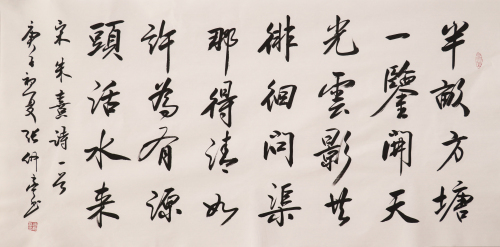 半畝方塘
一鑒開天
光雲影共
徘徊問渠
那得清如
許為有源
頭活水来
宋朱熹詩一首
庚子初夏張